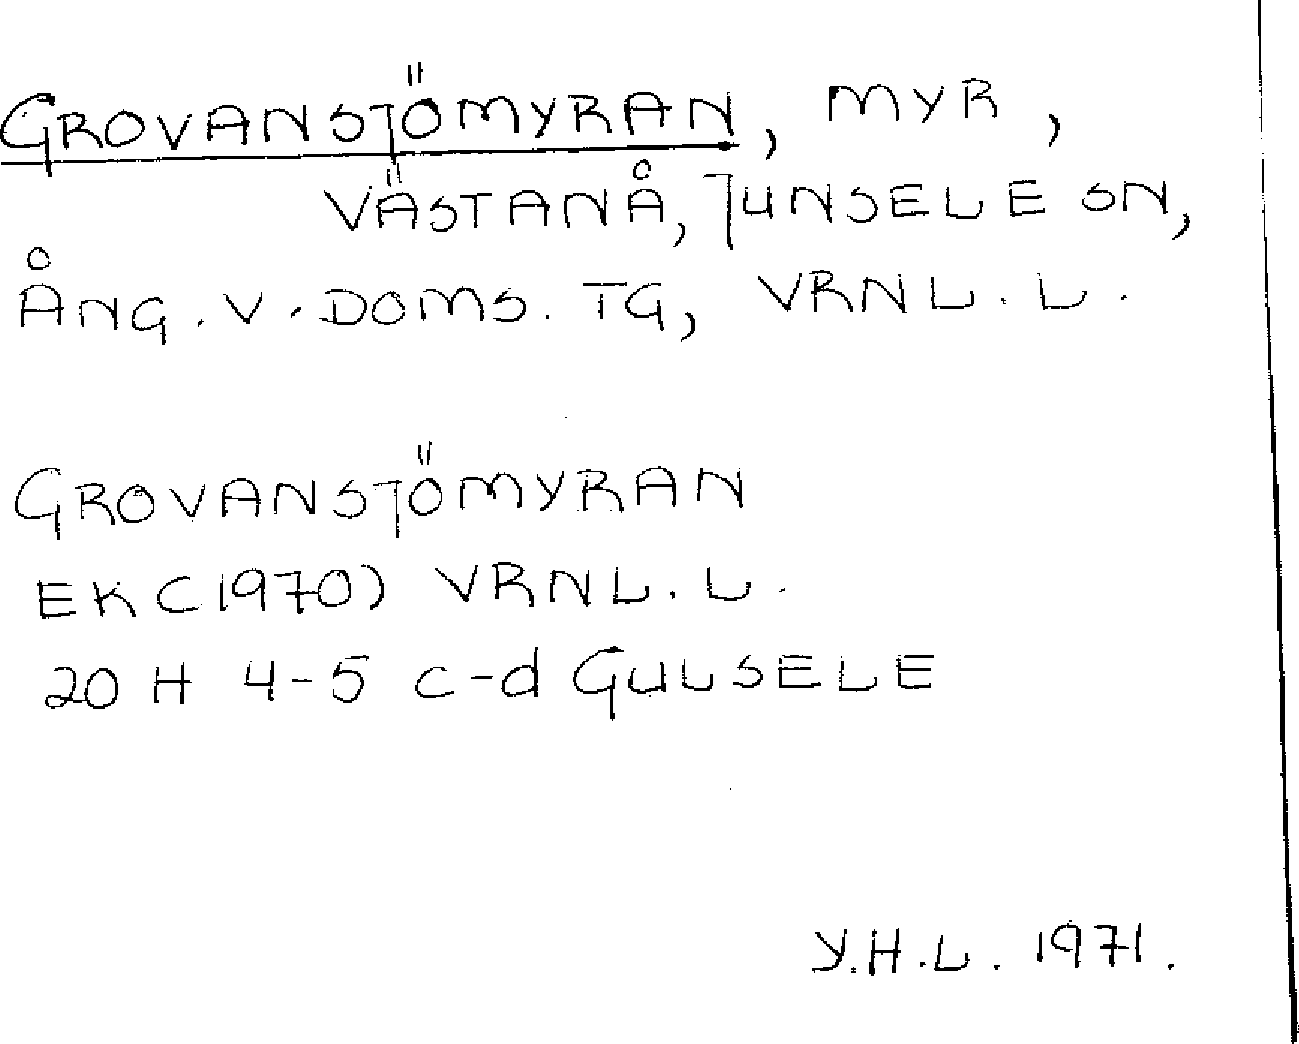 GROVANSJÖMYRAN, MYR,
VÄSTANÅ, JUNSELE SN,
ÅNG. V. DOMS. TG, VRNL. L.
GROVANSJÖMYRAN
EK (1970) VRNL. L.
20 H 4-5 c-d GULSELE
Y.H.L. 1971.